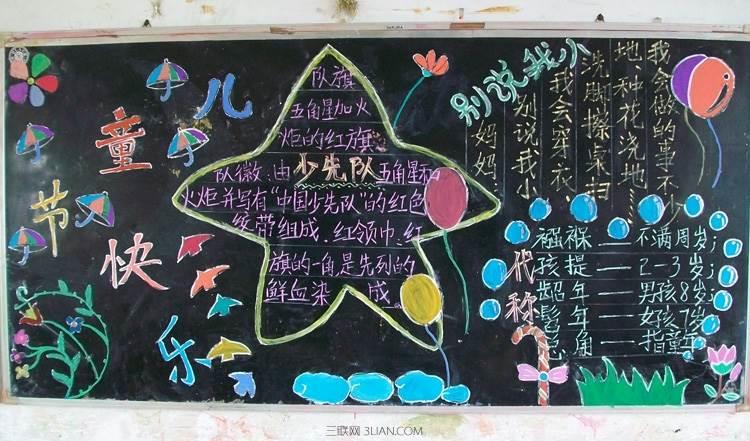 儿
童
节
快
乐
队旗
五角星加火
炬的红旗
队徽:由少先队五角星和
火炬并写有"中国少先队"的红色
绶带组成.红领巾:红
旗的一角是先烈的
鲜血染 成。
别说我小
妈妈:
别说我小
我会穿衣、
洗脚擦桌扫
地、种花浇地、
我会做的事不少
代称
襁褓——不满周岁;
孩提——2-3岁;
龆年——男孩8岁;
髫年——女孩7岁
总角——指童年
三联网 3LIAN.COM